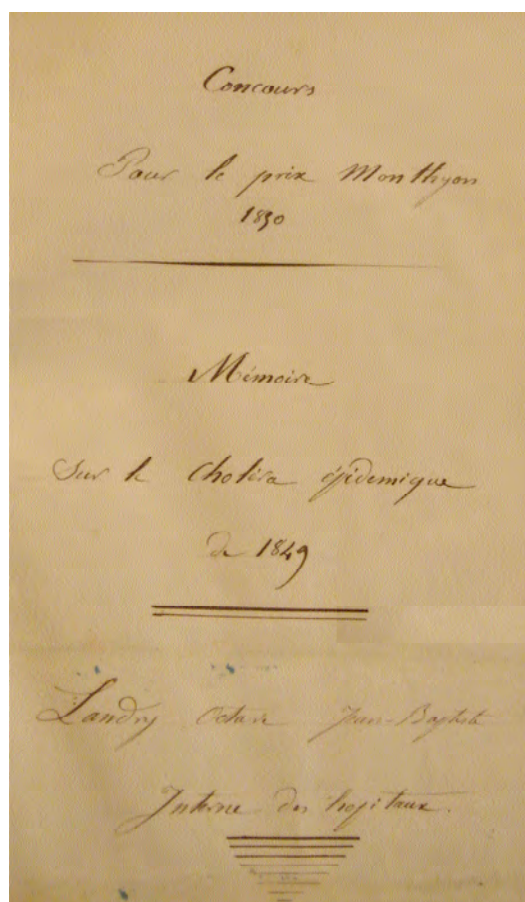 Concours
Pour le prix Monthyon
1850
Mémoire
Sur le Choléra épidemique
de 1849
Landry Octave Jean-Baptiste
Interne des hopitaux.